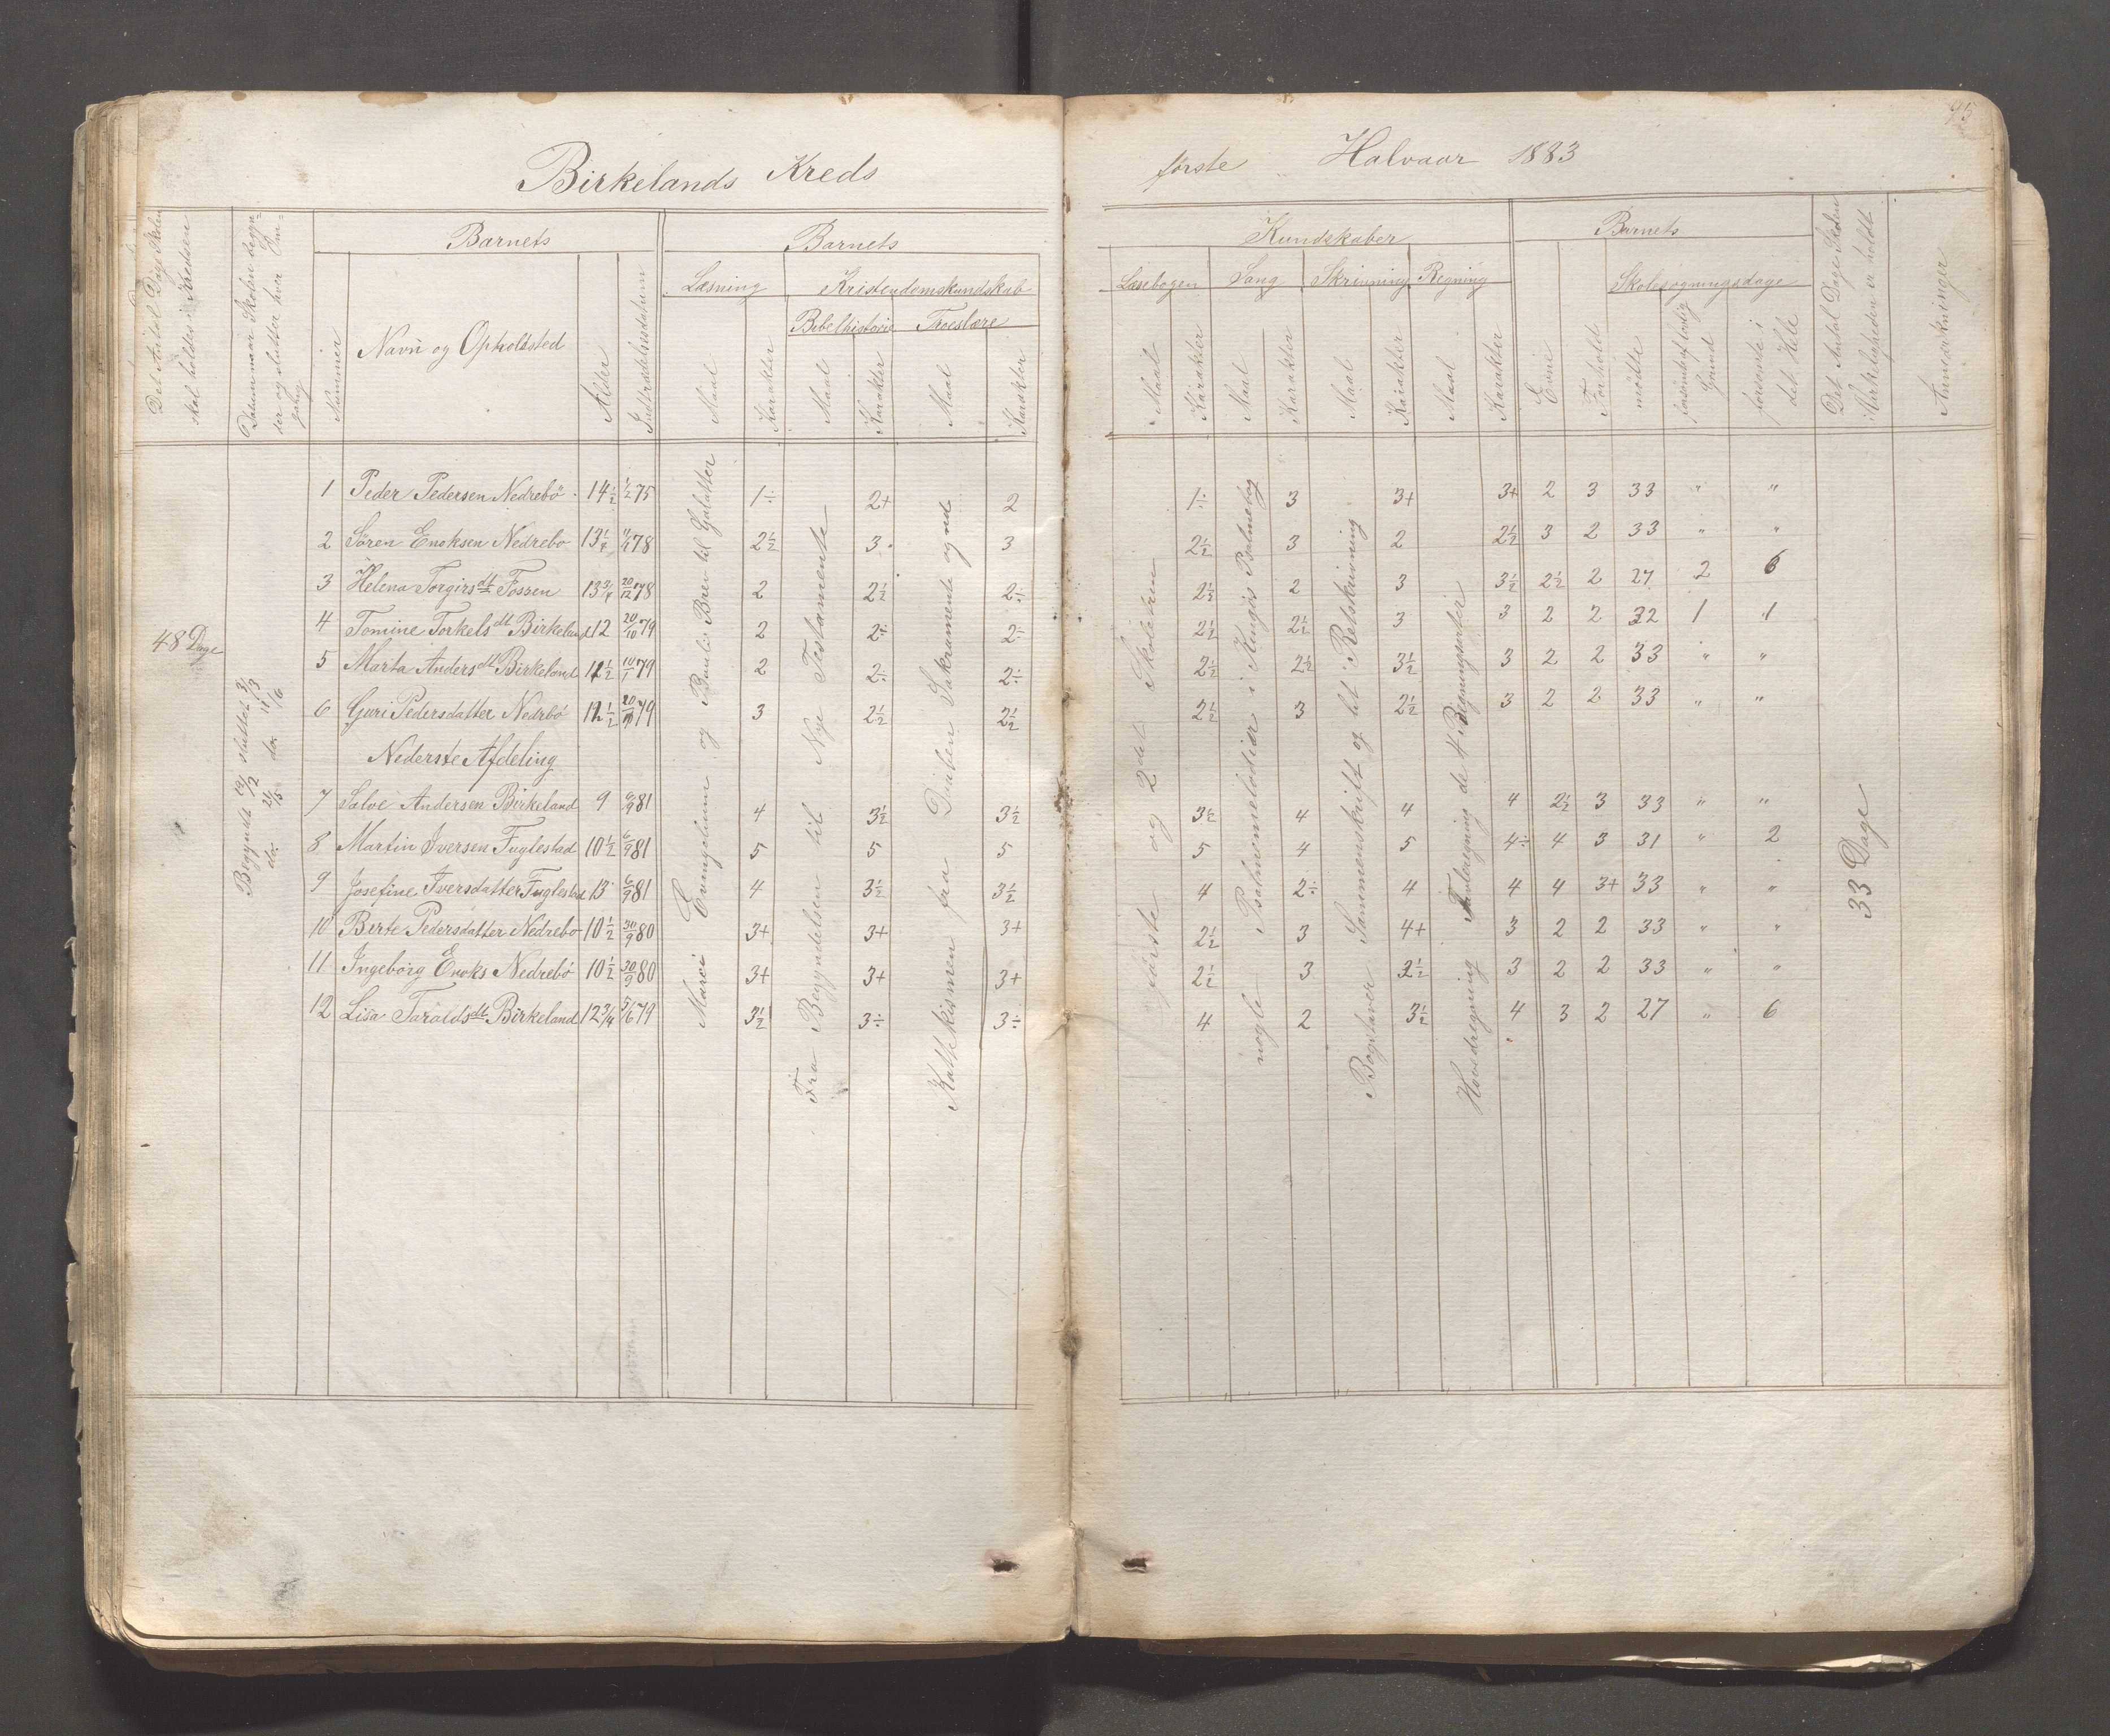 95
Birkelands Kreds
første Halvaar 1883
Det Antal Dage Skolen skal holdes i Kredsen
Datum naar Skolen begynder og slutter hver Omgang
Barnets
Nummer
Navn og Opholdsted
Alder
Indtrædelsesdatum
Barnets
Læsning
Maal
Karakter
Kristendomskundskab
Bibelhistorie
Maal
Karakter
Troeslære
Maal
Karakter
Kundskaber
Læsebogen
Maal
Karakter
Sang
Maal
Karakter
Skrivning
Maal
Karakter
Regning
Maal
Karakter
Barnets
Evne
Forhold
Skolesøgningsdage
mødte
forsømt af lovlig Grund
forsømte i det Hele
Det Antal Dage Skolen i Virkeligheden er holdt
Anmærkninger
48 Dage
Begyndt 12/2 sluttet 3/3
do. 21/5 do. 11/6
Marci Evangelium og Pauli Brev til Galatter
Fra Begyndelsen til Nye Testamente
Katekismen fra Daaben Sakramente og ud
første og 2det Skoletrin
nogle Psalmemelodier i Kingos Psalmebog
Bogstaver Sammenskrift og lidt Retskrivning
Hovedregning Tavleregning de 4 Regningsarter
33 Dage
1 Peder Pedersen Nedrebö 14½ ½75 1÷ 2+ 2 1÷ 3 3+ 3+ 2 3 33 " "
2 Sören Enoksen Nedrebo 13¼ 78 2½ 3 3 2½ 3 2 2½ 3 2 33 " "
3 Helena Torgirsdt Fossen 13¾ 20/12 78 2 2½ 2÷ 2½ 2 3 3½ 2½ 2 27 2 6
4 Tomine Torkelsdt Birkeland 12 20/10 79 2 2÷ 2÷ 2½ 2½ 3 3 2 2 32 1 1
5 Marta Andersdt Birkeland 12½ 10/1 79 2 2÷ 2÷ 2½ 2½ 3½ 3 2 2 33 " "
6 Guri Pedersdatter Nedrbö 12½ 79 3 2½ 2½ 2½ 3 2½ 3 2 2 33 " "
Nederste Afdeling
7 Salve Andersen Birkeland 9 6/9 81 4 3½ 3½ 3½ 4 4 4 2½ 3 33 " "
8 Martin Iversen Fuglestad 10½ 6/9 81 5 5 5 5 4 5 4÷ 4 3 31 " 2
9 Josefine Iversdatter Fuglestad 13 6/9 81 4 3½ 3½ 4 2÷ 4 4 4 3+ 33 " "
10 Berte Pedersdatter Nedrebo 10½ 30/9 80 3+ 3+ 3+ 2½ 3 4+ 3 2 2 33 " "
11 Ingeborg Enoks Nedrebö 10½ 30/9 80 3+ 3+ 3+ 2½ 3 3½ 3 2 2 33 " "
12 Lisa Taraldsdt Birkeland 12¾ 5/6 79 3½ 3÷ 3÷ 4 2 3½ 4 3 2 27 " 6